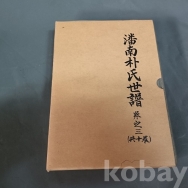 潘南朴氏世譜
卷之三
(共十卷)
kobay